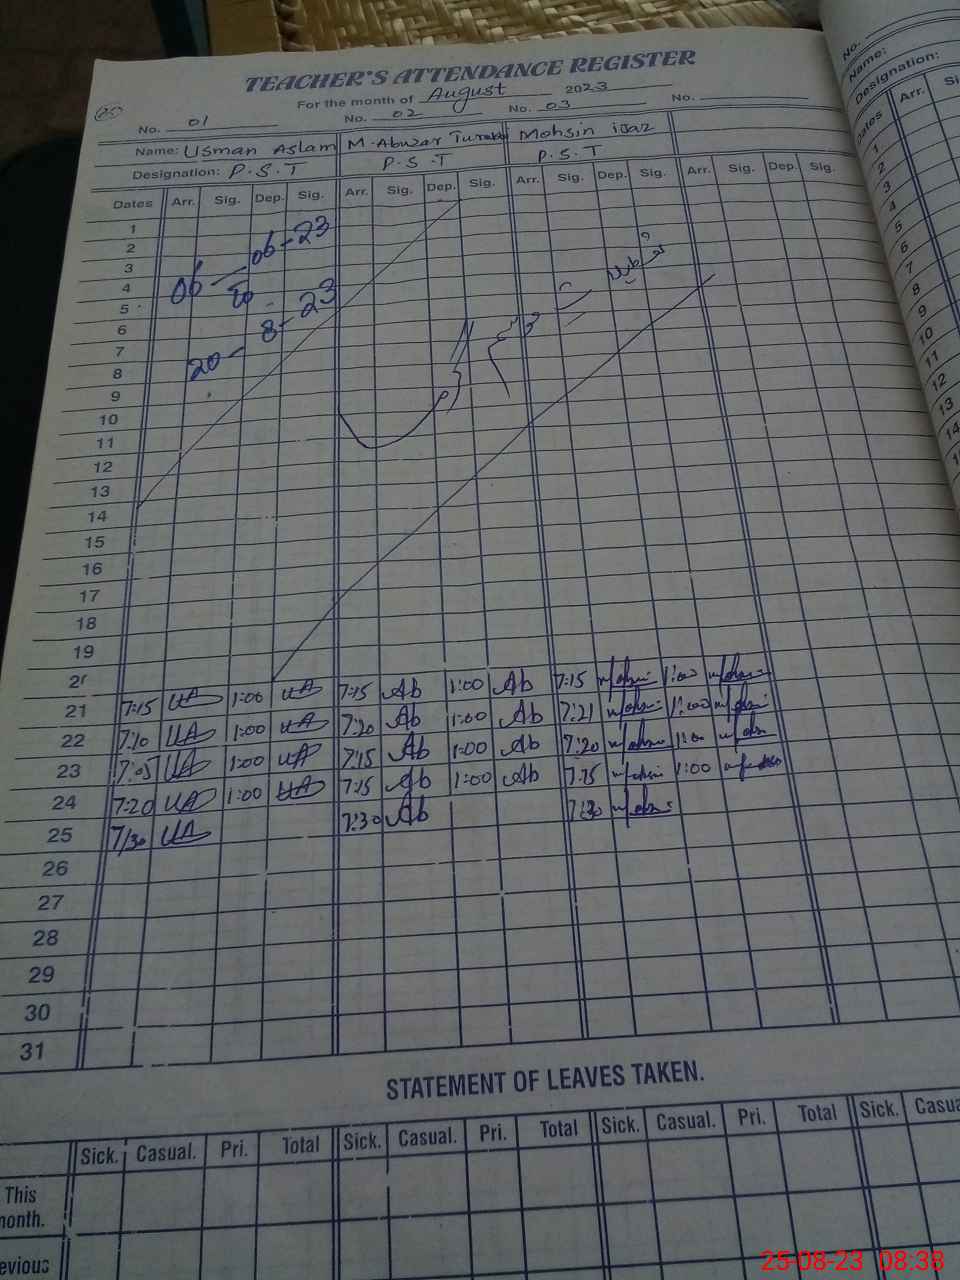 TEACHER'S ATTENDANCE REGISTER
For the month of August 2023
No. 01 No. 02 No. 03 No.
Name: Usman Aslam M. Abuzar Mohsin ijaz
Designation: P.S.T P.S.T P.S.T
Dates Arr. Sig. Dep. Sig. Arr. Sig. Dep. Sig. Arr. Sig. Dep. Sig. Arr. Sig. Dep. Sig.
1
2
3
4
5
6
7
8
9
10
11
12
13
14
15
16
17
18
19
06-06-23
To
20-8-23
21 7:15 UA 1:00 UA 7:15 Ab 1:00 Ab 7:15 1:00
22 7:10 UA 1:00 UA 7:20 Ab 1:00 Ab 7:21 1:00
23 7:05 UA 1:00 UA 7:15 Ab 1:00 Ab 7:20 1:00
24 7:20 UA 1:00 UA 7:15 Ab 1:00 Ab 7:15 1:00
25 7/30 UA 7:30 Ab 7:30
26
27
28
29
30
31
STATEMENT OF LEAVES TAKEN.
Sick. Casual. Pri. Total Sick. Casual. Pri. Total Sick. Casual. Pri. Total Sick.
This
No.
Name:
Designation:
Dates Arr.
1
2
3
4
5
6
7
8
9
10
11
12
13
14
25-08-23 08:38